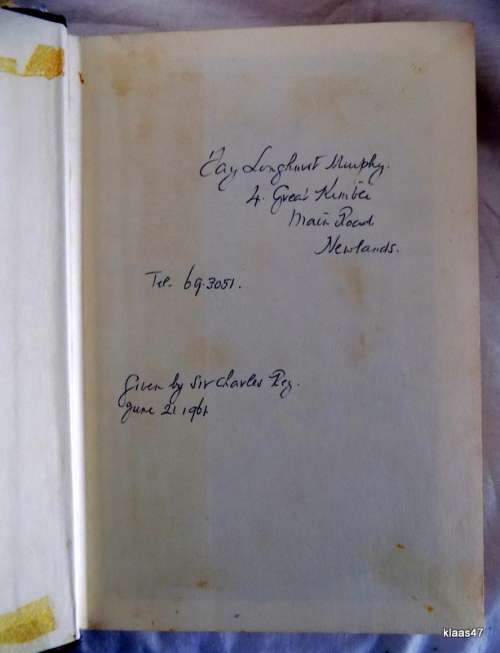 Fay Longhurst Murphy.
4. Great Kimble
Main Road
Newlands.
Tel. 69.3051.
Given by Sir Charles
June 21 1961
klaas47